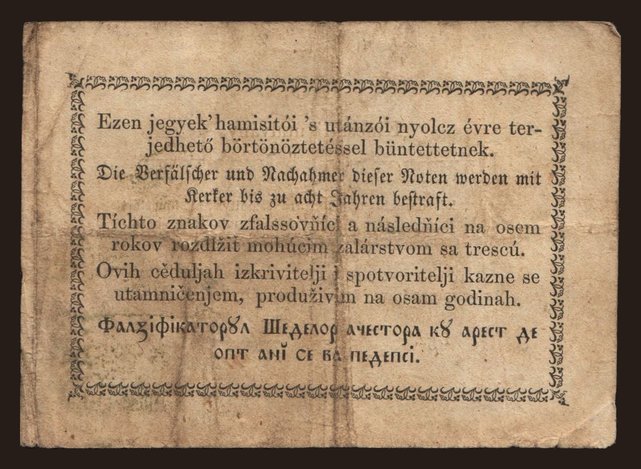 Ezen jegyek' hamisitói 's utánzói nyolcz évre ter-
jedhető börtönöztetéssel büntettetnek.
Die Verfälscher und Nachahmer dieser Noten werden mit
Kerker bis zu acht Jahren bestraft.
Tíchto znakov zfalssovňíci a následňíci na osem
rokov rozdĺžit mohúcim žalárstvom sa trescú.
Ovih cěduljah izkrivitelji i spotvoritelji kazne se
utamničenjem, produživim na osam godinah.
Фалзіфікаторꙋл Шеделор ачестора кꙋ арест де
опт анї се ва педепсі.